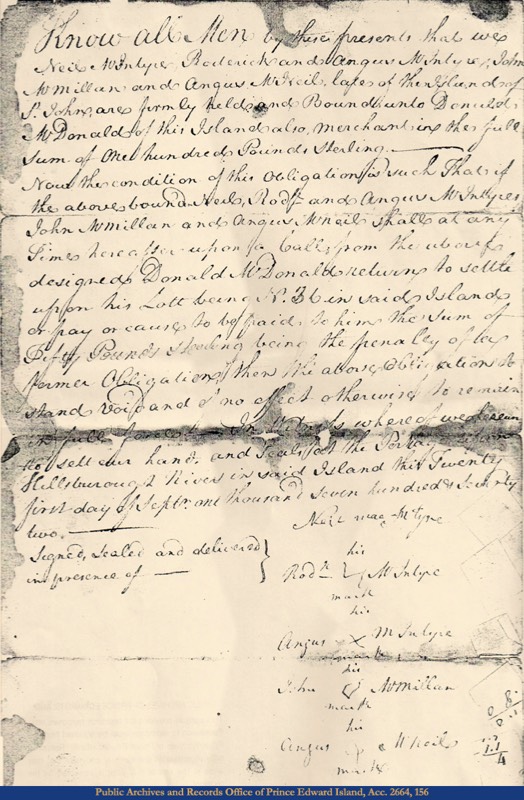 Know all Men by these presents that we
Neil McIntyre, Roderick and Angus McIntyre, John
McMillan and Angus McNeil, late of the Island of
St. John, are firmly held and Bound unto Donald
McDonald of this Island also, merchant, in the full
Sum of One hundred Pounds Sterling.
Now the condition of this Obligation is such That if
the above bound Neil, Rodk. and Angus McIntyres
John McMillan and Angus McNeil shall at any
Time hereafter upon a Call from the above
designed Donald McDonald return to settle
upon his Lott being No. 36 in said Island
or pay or cause to be paid to him the Sum of
Pounds sterling being the penalty of
former Obligation, then the above Obligation to
stand void and of no effect otherwise to remain
in full force. In Witness whereof we
to sett our hands and Seals att the Port
Hillsborough River in said Island this Twenty
first day of Septr. one thousand seven hundred & Seventy
two.
Signed, Sealed and delivered
in presence of
Neil McIntyre
his
Rodk McIntyre
mark
his
Angus X McIntyre
mark
his
John McMillan
mark
his
Angus McNeil
mark
Public Archives and Records Office of Prince Edward Island, Acc. 2664, 156